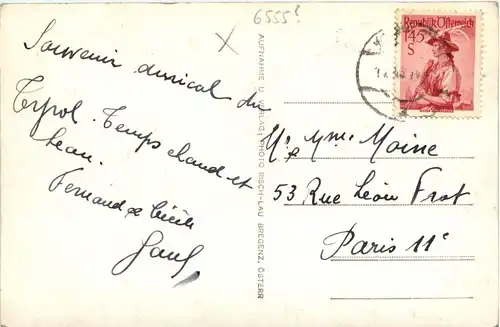 6555?
Souvenir amical du
Tyrol. Temps chaud et
beau.
Fernand & Cécile
AUFNAHME U. VERLAG: PHOTO RISCH-LAU BREGENZ, ÖSTERR
Republik Österreich
1.45
S
Mr & Mme Moine
53 Rue Léon Frot
Paris 11e